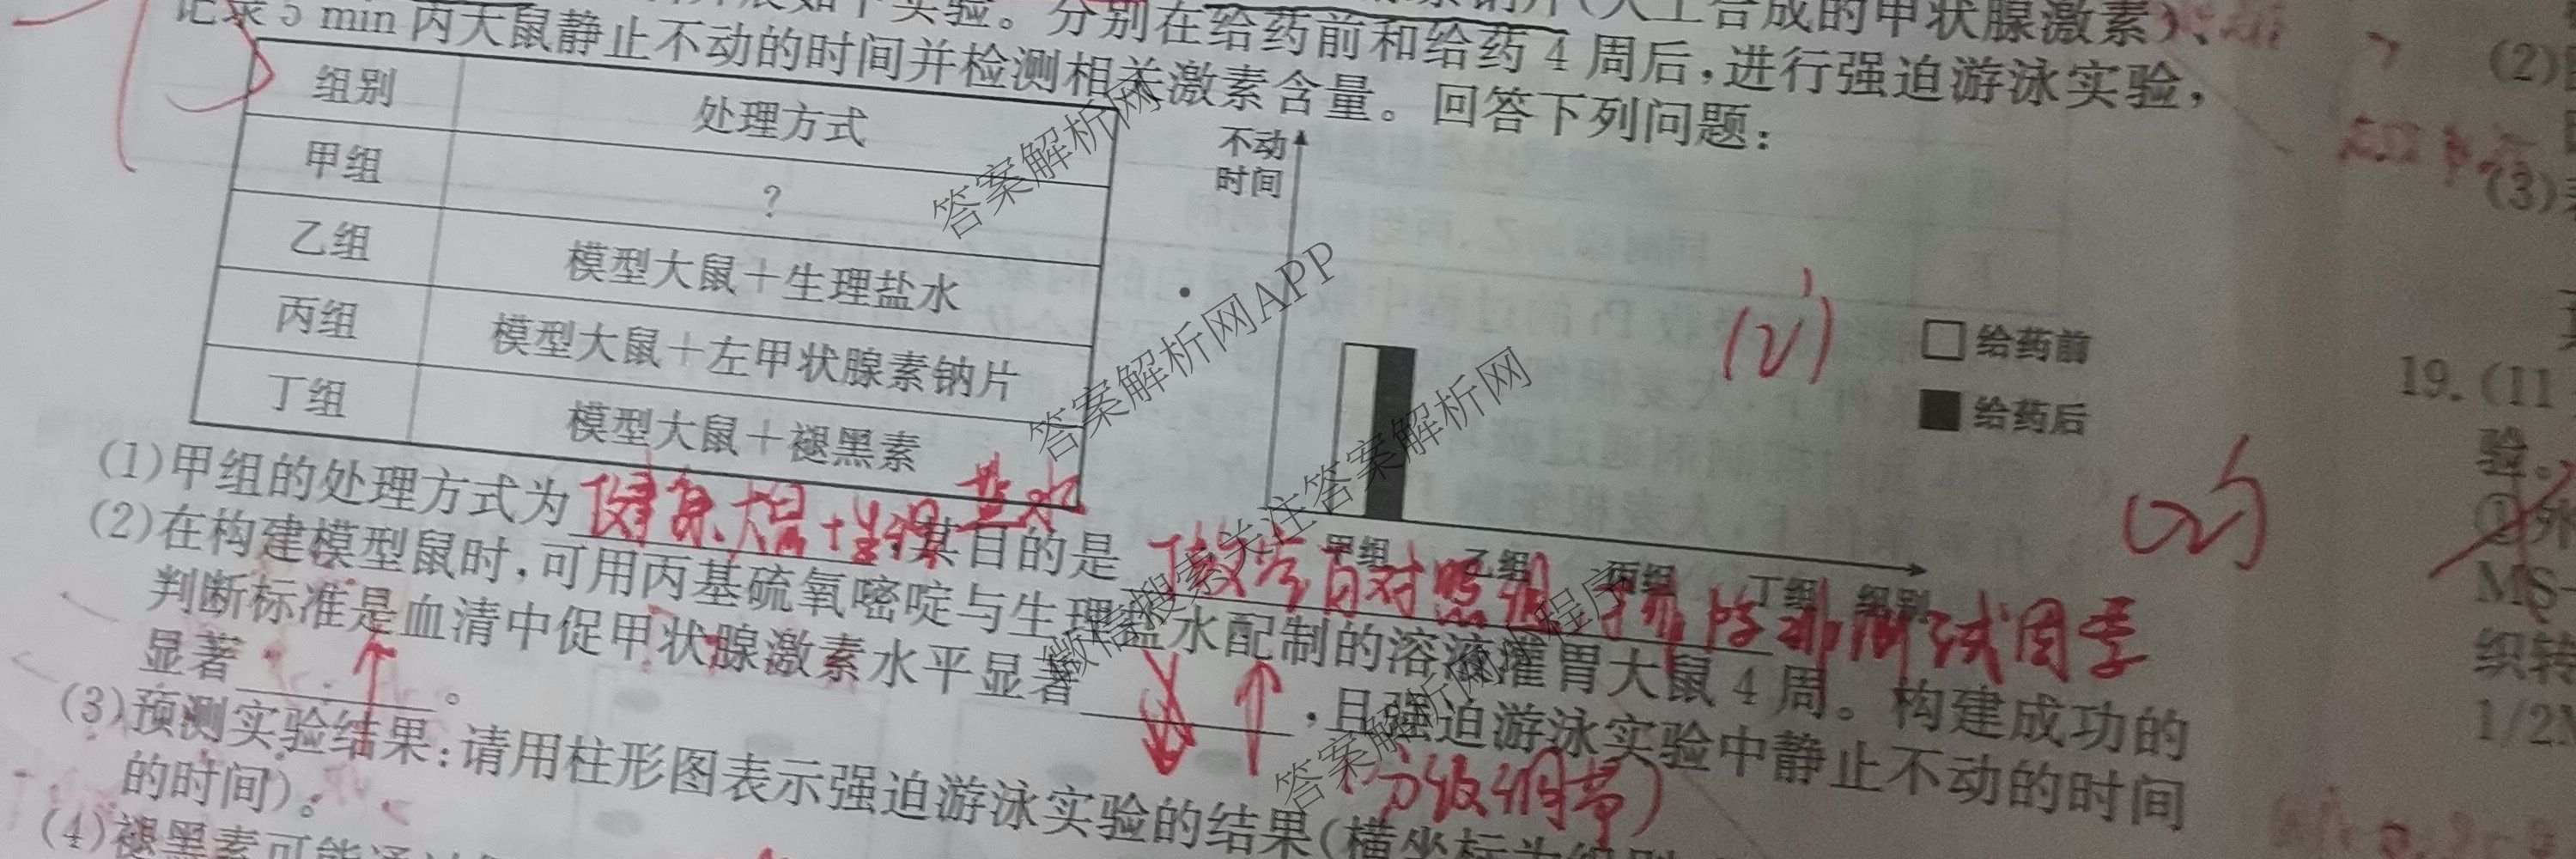 记录5 min内大鼠静止不动的时间并检测相关激素含量。回答下列问题:
实验。分别在给药前和给药4周后,进行强迫游泳实验,
(人工合成的甲状腺激素)、
组别 处理方式
甲组 ?
乙组 模型大鼠+生理盐水
丙组 模型大鼠+左甲状腺素钠片
丁组 模型大鼠+褪黑素
不动
时间
给药前
给药后
甲组 乙组 丙组 丁组 组别
(1)甲组的处理方式为 健康大鼠+生理盐水 ,其目的是 做空白对照组
(2)在构建模型鼠时,可用丙基硫氧嘧啶与生理盐水配制的溶液灌胃大鼠4周。构建成功的
判断标准是血清中促甲状腺激素水平显著 ↑ ,且强迫游泳实验中静止不动的时间
显著 ↑ 。
(分级调节)
(3)预测实验结果:请用柱形图表示强迫游泳实验的结果(横坐标为组别
的时间)。
(4)褪黑素可能通过
(2)
(3)
19.(11
验。
MS
织转
1/2M
(2')
(2')
答案解析网
答案解析网APP
微信搜索关注答案解析网
答案解析网小程序